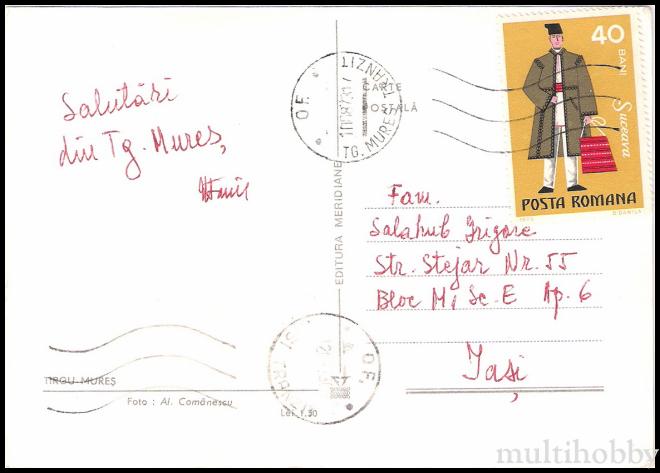 Salutări
din Tg. Mureș,
CARTE
POȘTALĂ
40
BANI
Suceava
POSTA ROMANA
1973
O.F.
TG. MUREȘ
TRANZIT
EDITURA MERIDIANE
Fam.
Salahub Grigore
Str. Stejar Nr. 55
Bloc M1 Sc. E Ap. 6
Iași
TÎRGU-MUREȘ
Foto : Al. Comănescu
Lei 1,50
O.F.
multihobby